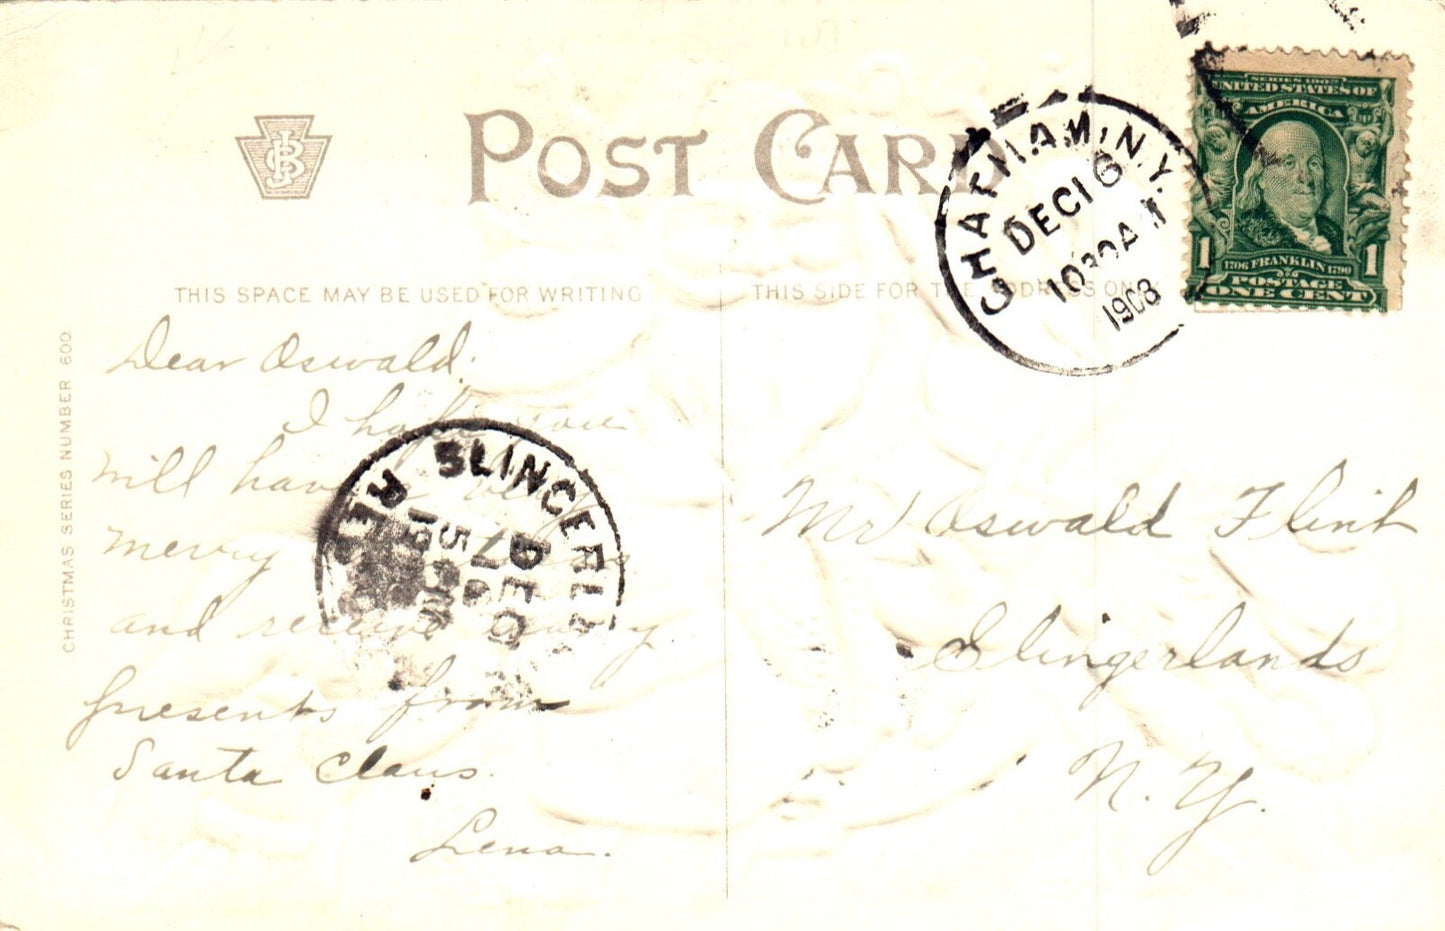 JB
POST CARD
THIS SPACE MAY BE USED FOR WRITING
THIS SIDE FOR THE ADDRESS ONLY
CHATHAM, N.Y.
DEC 16
1030 A M
1908
SERIES 1902
UNITED STATES OF
AMERICA
1706 FRANKLIN 1790
1 1
POSTAGE
ONE CENT
CHRISTMAS SERIES NUMBER 600
Dear Oswald.
I hope you
will have a very
merry
and receive many
presents from
Santa Claus.
Lena.
SLINGERLA
REC
DEC
17
5
19
Mr Oswald Flint
Slingerlands
N. Y.